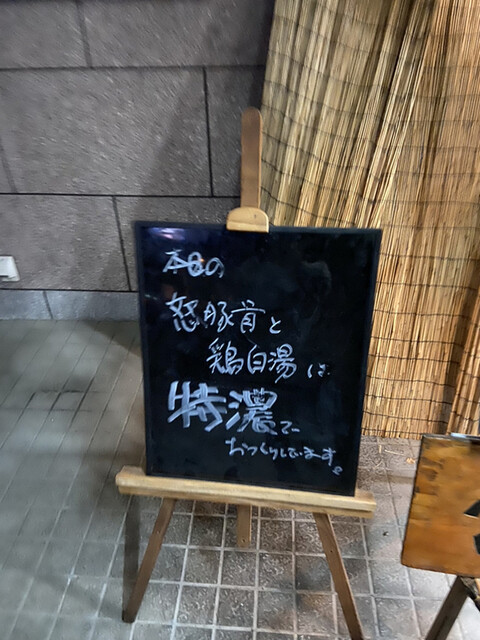 本日の
怒豚骨と
鶏白湯は
特濃で
おつくりしています。